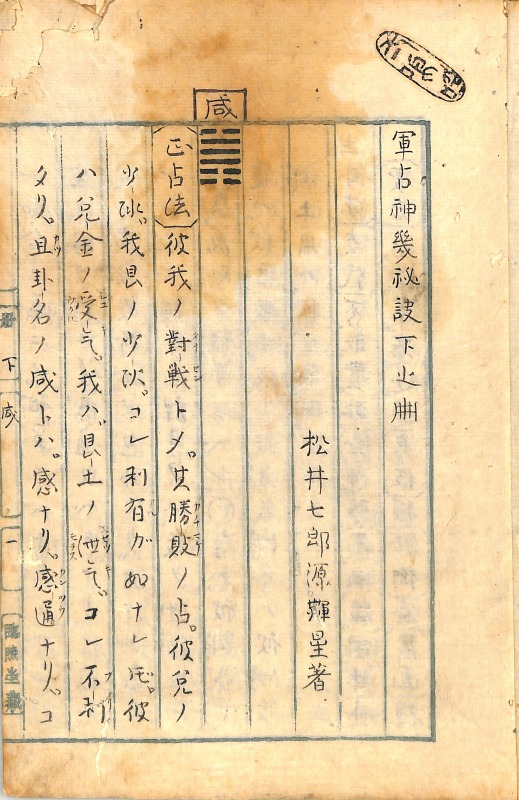 軍占神幾祕訣下之冊
松井七郎源鞸星著
咸
〔正占法〕彼我ノ對戰トメ其勝敗ノ占彼兌ノ
少陰我艮ノ少陽コレ利有ガ如ナレ𪜈彼
ハ兌金ノ受気我ハ艮土ノ泄気コレ不利
タリ且卦名ノ咸トハ感ナリ感通ナリコ
下
咸
一